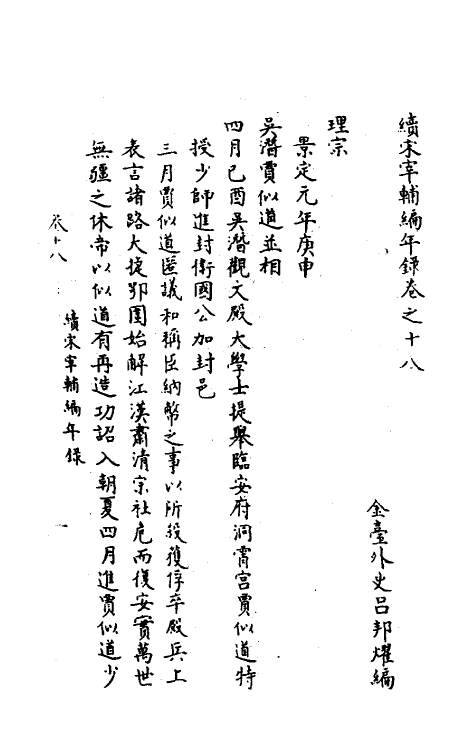 續宋宰輔編年錄卷之十八
金臺外史呂邦燿編
理宗
景定元年庚申
吳潛賈似道並相
四月己酉吳潛觀文殿大學士提舉臨安府洞霄宮賈似道特
授少師進封衛國公加封邑
三月賈似道匿議和稱臣納幣之事以所殺獲俘卒殿兵上
表言諸路大捷鄂圍始解江漢肅清宗社危而復安實萬世
無疆之休帝以似道有再造功詔入朝夏四月進賈似道少
卷十八
續宋宰輔編年錄
一